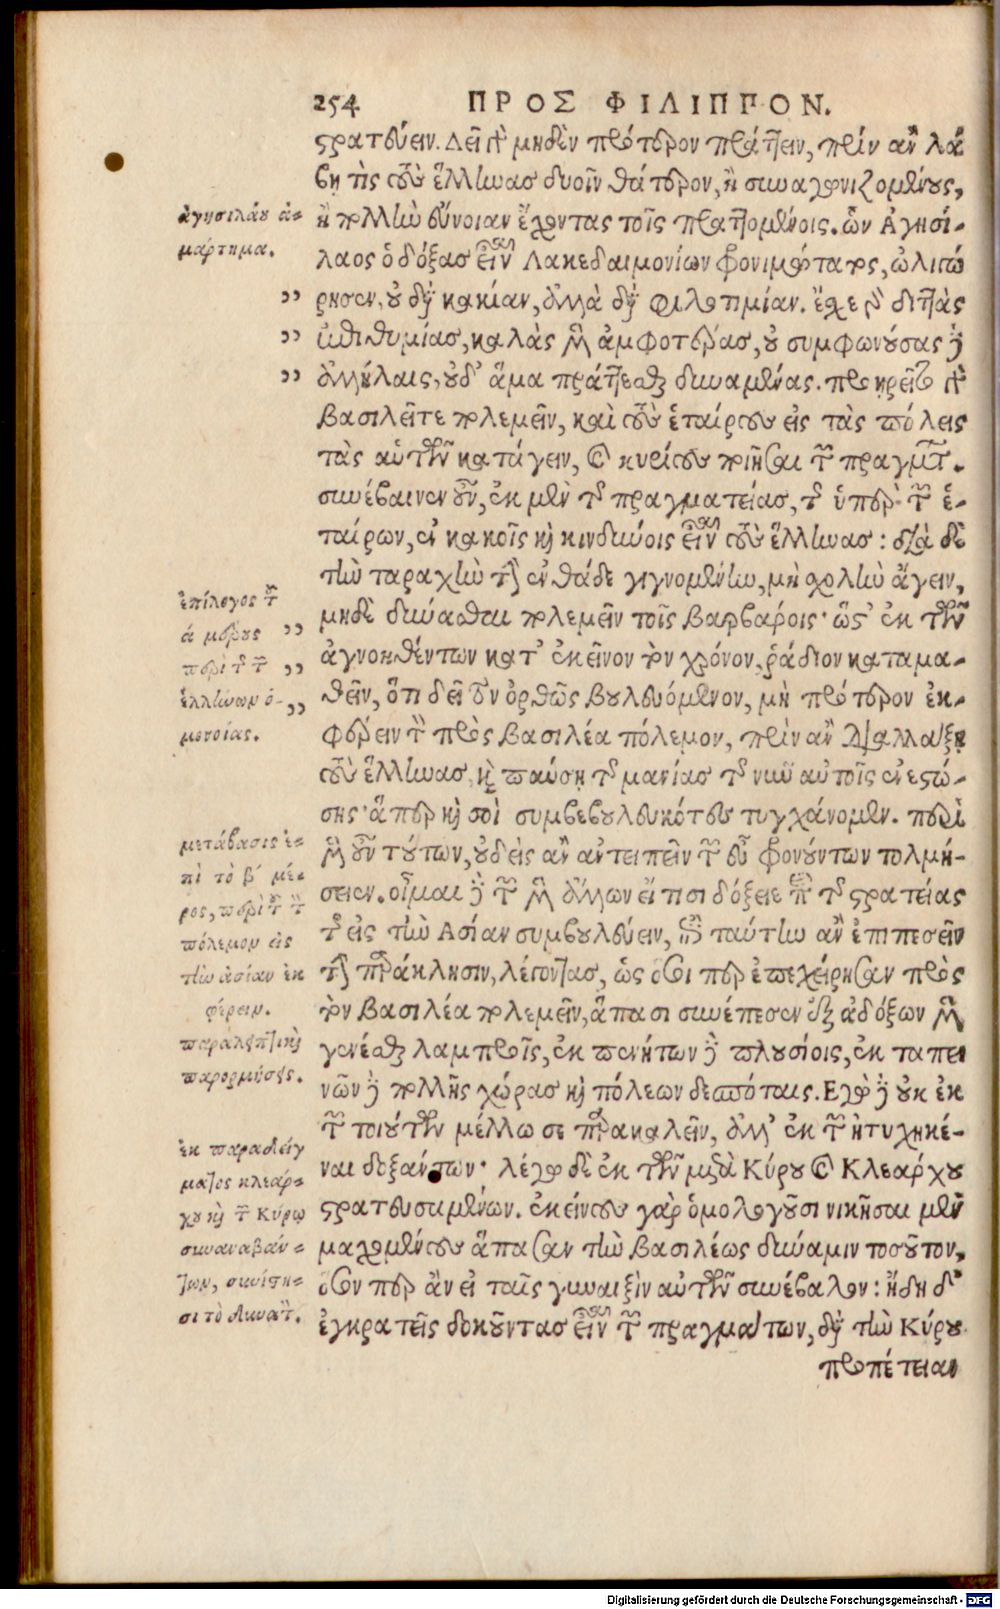 254 ΠΡΟΣ ΦΙΛΙΠΠΟΝ.
στρατεύειν. Δεῖ δὲ μηδὲν πρότερον πράττειν, πρὶν ἂν λά
βῃ τὶς τοὺς ἕλληνας δυοῖν θάτερον, ἢ συναγωνιζομένους,
ἢ πολλὴν εὔνοιαν ἔχοντας τοῖς πραττομένοις. ὧν Ἀγησί-
λαος ὁ δόξας εἶναι Λακεδαιμονίων φρονιμώτατος, ὠλιγώ
ρησεν, οὐ διὰ κακίαν, ἀλλὰ διὰ φιλοτιμίαν. ἔσχε γὰρ διττὰς
ἐπιθυμίας, καλὰς μὲν ἀμφοτέρας, οὐ συμφωνούσας δὲ
ἀλλήλαις, οὐδ' ἅμα πράττεσθαι δυναμένας. προῃρεῖτο γὰρ
βασιλεῖ τε πολεμεῖν, καὶ τοὺς ἑταίρους εἰς τὰς πόλεις
τὰς αὑτῶν κατάγειν, καὶ κυρίους ποιῆσαι τῶν πραγμάτων.
συνέβαινεν οὖν, ἐκ μὲν τῆς πραγματείας, τῆς ὑπὲρ τῶν ἑ-
ταίρων, ἐν κακοῖς καὶ κινδύνοις εἶναι τοὺς ἕλληνας: διὰ δὲ
τὴν ταραχὴν τὴν ἐνθάδε γιγνομένην, μὴ σχολὴν ἄγειν,
μηδὲ δύνασθαι πολεμεῖν τοῖς βαρβάροις· ὥστ' ἐκ τῶν
ἀγνοηθέντων κατ' ἐκεῖνον τὸν χρόνον, ῥάδιον καταμα-
θεῖν, ὅτι δεῖ τὸν ὀρθῶς βουλευόμενον, μὴ πρότερον ἐκ-
φέρειν τὸν πρὸς βασιλέα πόλεμον, πρὶν ἂν διαλλάξῃ
τοὺς ἕλληνας, καὶ παύσῃ τῆς μανίας τῆς νῦν αὐτοῖς ἐνεστώ-
σης· ἅπερ καὶ σοὶ συμβεβουλευκότες τυγχάνομεν. περὶ
μὲν οὖν τούτων, οὐδεὶς ἂν ἀντειπεῖν τῶν εὖ φρονούντων τολμή-
σειεν. οἶμαι δὲ τῶν μὲν ἄλλων εἴ τισι δόξειε περὶ τῆς στρατείας
τῆς εἰς τὴν Ἀσίαν συμβουλεύειν, ἐπὶ ταύτην ἂν ἐπιπεσεῖν
τὴν παράκλησιν, λέγοντας, ὡς ὅσοι περ ἐπεχείρησαν πρὸς
τὸν βασιλέα πολεμεῖν, ἅπασι συνέπεσεν ἐξ ἀδόξων μὲν
γενέσθαι λαμπροῖς, ἐκ πενήτων δὲ πλουσίοις, ἐκ ταπει
νῶν δὲ πολλῆς χώρας καὶ πόλεων δεσπόταις. Ἐγὼ δὲ οὐκ ἐκ
τῶν τοιούτων μέλλω σε παρακαλεῖν, ἀλλ' ἐκ τῶν ἠτυχηκέ-
ναι δοξάντων· λέγω δὲ ἐκ τῶν μετὰ Κύρου καὶ Κλεάρχου
στρατευσαμένων. ἐκείνους γὰρ ὁμολογοῦσι νικῆσαι μὲν
μαχομένους ἅπασαν τὴν βασιλέως δύναμιν τοσοῦτον,
ὅσον περ ἂν εἰ ταῖς γυναιξὶν αὐτῶν συνέβαλον: ἤδη δ'
ἐγκρατεῖς δοκοῦντας εἶναι τῶν πραγμάτων, διὰ τὴν Κύρου
προπέτειαν
ἀγησιλάου ἁ-
μάρτημα.
ἐπίλογος τοῦ
ά μέρους
περὶ τῆς τῶν
ἑλλήνων ὁ-
μονοίας.
μετάβασις ἐ-
πὶ τὸ β´ μέ-
ρος, περὶ τοῦ τὸν
πόλεμον εἰς
τὴν ἀσίαν ἐκ
φέρειν.
παραληπτικὴ
παρορμήσις.
ἐκ παραδείγ
ματος κλεάρ-
χου καὶ τῶν Κύρῳ
συναναβάν-
των, συνίστη-
σι τὸ δυνατόν.
Digitalisierung gefördert durch die Deutsche Forschungsgemeinschaft - DFG